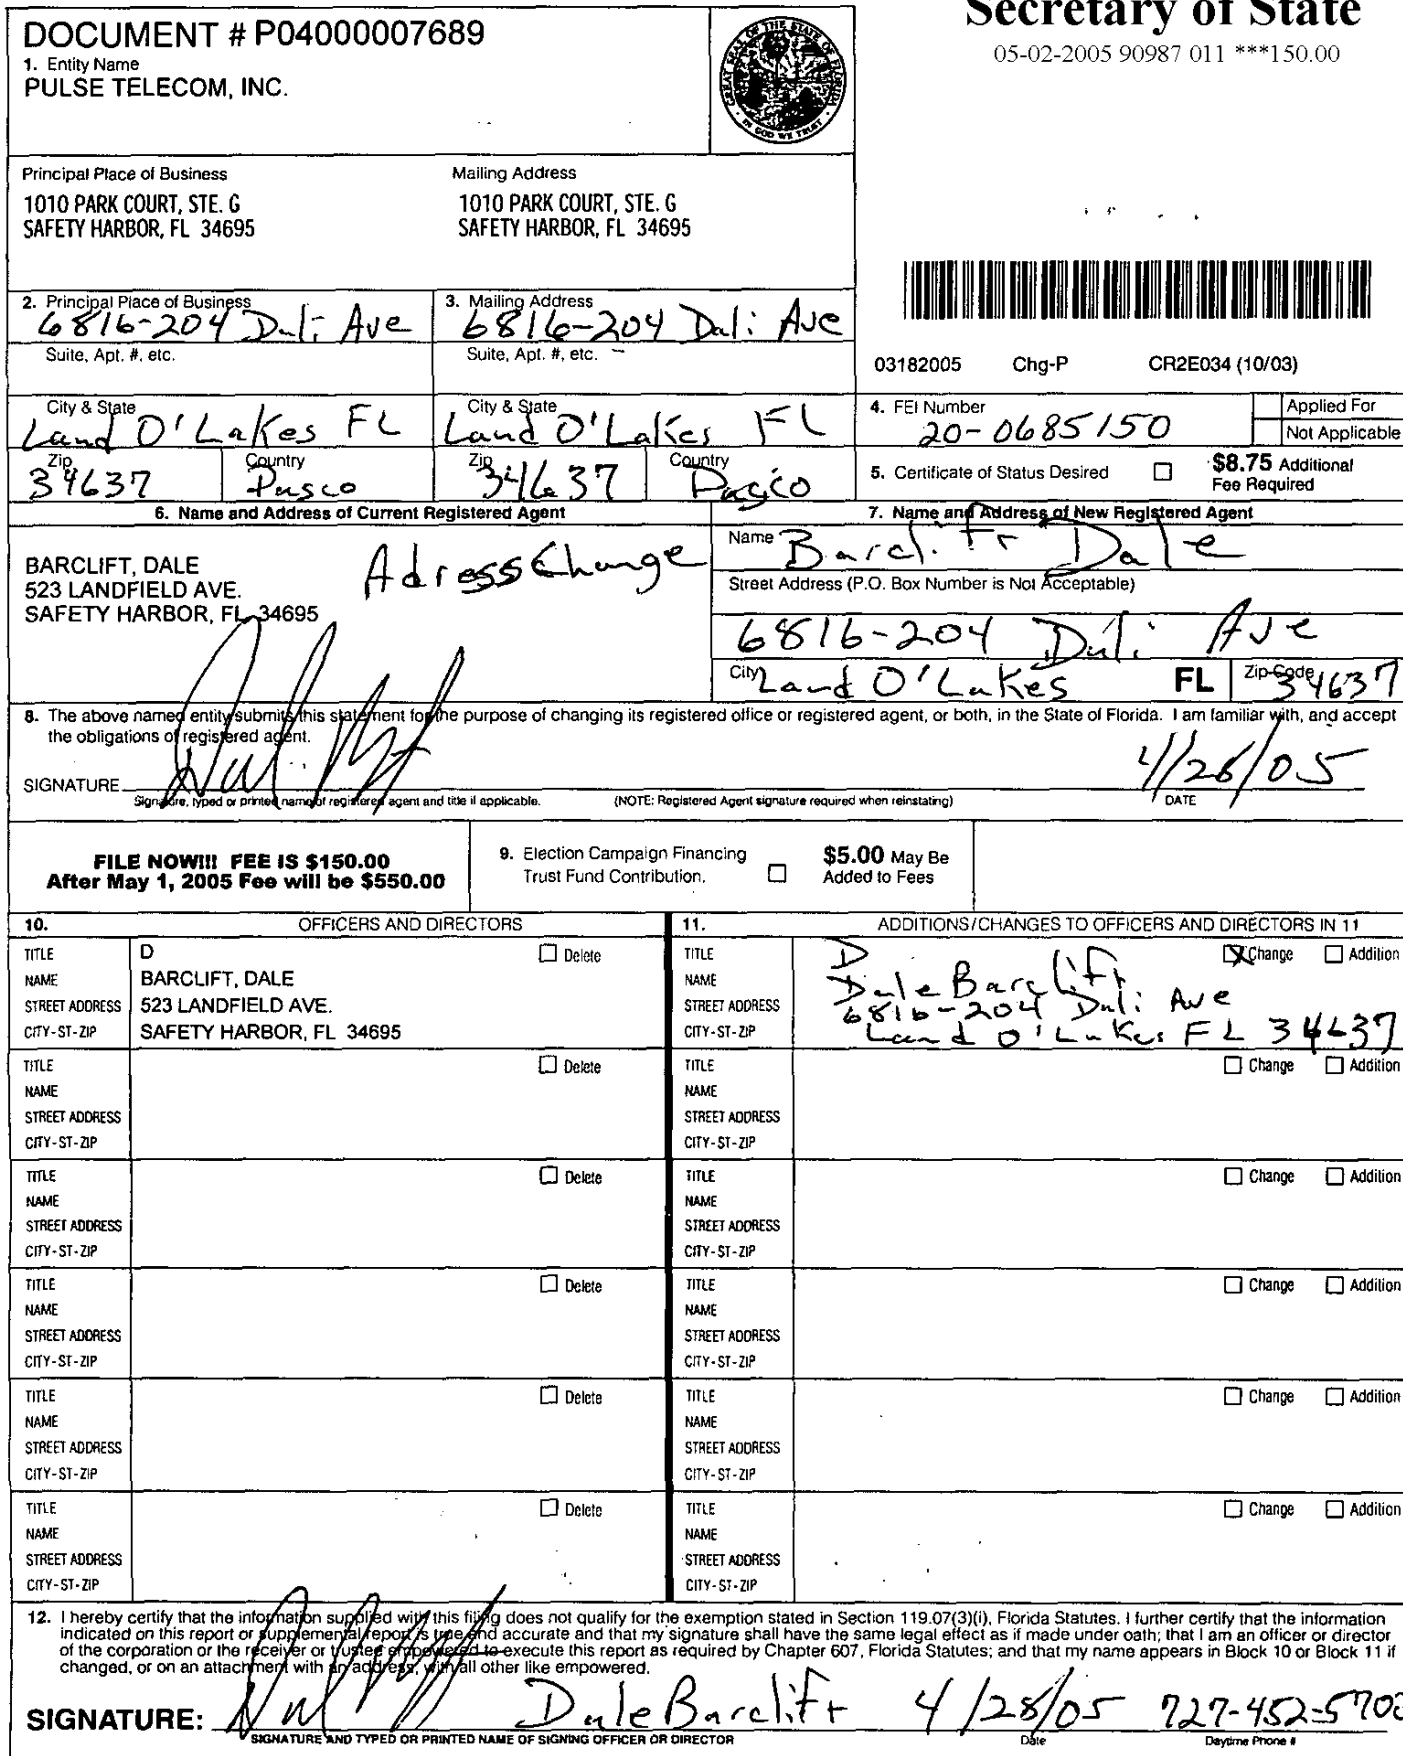 Secretary of State
05-02-2005 90987 011 ***150.00
DOCUMENT # P04000007689
1. Entity Name
PULSE TELECOM, INC.
GREAT SEAL OF THE STATE OF FLORIDA
IN GOD WE TRUST
Principal Place of Business
1010 PARK COURT, STE. G
SAFETY HARBOR, FL 34695
Mailing Address
1010 PARK COURT, STE. G
SAFETY HARBOR, FL 34695
2. Principal Place of Business
6816-204 Dali Ave
Suite, Apt. #, etc.
City & State
Land O'Lakes FL
Zip
34637
Country
Pasco
3. Mailing Address
6816-204 Dali Ave
Suite, Apt. #, etc.
City & State
Land O'Lakes FL
Zip
34637
Country
Pasco
03182005 Chg-P CR2E034 (10/03)
4. FEI Number
20-0685150
Applied For
Not Applicable
5. Certificate of Status Desired
$8.75 Additional
Fee Required
6. Name and Address of Current Registered Agent
BARCLIFT, DALE
523 LANDFIELD AVE.
SAFETY HARBOR, FL 34695
Adress Change
7. Name and Address of New Registered Agent
Name Barclift Dale
Street Address (P.O. Box Number is Not Acceptable)
6816-204 Dali Ave
City Land O'Lakes FL Zip Code 34637
8. The above named entity submits this statement for the purpose of changing its registered office or registered agent, or both, in the State of Florida. I am familiar with, and accept
the obligations of registered agent.
SIGNATURE
4/28/05
Signature, typed or printed name of registered agent and title if applicable. (NOTE: Registered Agent signature required when reinstating) DATE
FILE NOW!!! FEE IS $150.00
After May 1, 2005 Fee will be $550.00
9. Election Campaign Financing
Trust Fund Contribution.
$5.00 May Be
Added to Fees
10. OFFICERS AND DIRECTORS
TITLE D Delete
NAME BARCLIFT, DALE
STREET ADDRESS 523 LANDFIELD AVE.
CITY-ST-ZIP SAFETY HARBOR, FL 34695
TITLE Delete
NAME
STREET ADDRESS
CITY-ST-ZIP
TITLE Delete
NAME
STREET ADDRESS
CITY-ST-ZIP
TITLE Delete
NAME
STREET ADDRESS
CITY-ST-ZIP
TITLE Delete
NAME
STREET ADDRESS
CITY-ST-ZIP
TITLE Delete
NAME
STREET ADDRESS
CITY-ST-ZIP
11. ADDITIONS/CHANGES TO OFFICERS AND DIRECTORS IN 11
TITLE D Change Addition
NAME Dale Barclift
STREET ADDRESS 6816-204 Dali Ave
CITY-ST-ZIP Land O'Lakes FL 34637
TITLE Change Addition
NAME
STREET ADDRESS
CITY-ST-ZIP
TITLE Change Addition
NAME
STREET ADDRESS
CITY-ST-ZIP
TITLE Change Addition
NAME
STREET ADDRESS
CITY-ST-ZIP
TITLE Change Addition
NAME
STREET ADDRESS
CITY-ST-ZIP
TITLE Change Addition
NAME
STREET ADDRESS
CITY-ST-ZIP
12. I hereby certify that the information supplied with this filing does not qualify for the exemption stated in Section 119.07(3)(i), Florida Statutes. I further certify that the information
indicated on this report or supplemental report is true and accurate and that my signature shall have the same legal effect as if made under oath; that I am an officer or director
of the corporation or the receiver or trustee empowered to execute this report as required by Chapter 607, Florida Statutes; and that my name appears in Block 10 or Block 11 if
changed, or on an attachment with an address, with all other like empowered.
SIGNATURE: Dale Barclift 4/28/05 727-452-5703
SIGNATURE AND TYPED OR PRINTED NAME OF SIGNING OFFICER OR DIRECTOR Date Daytime Phone #